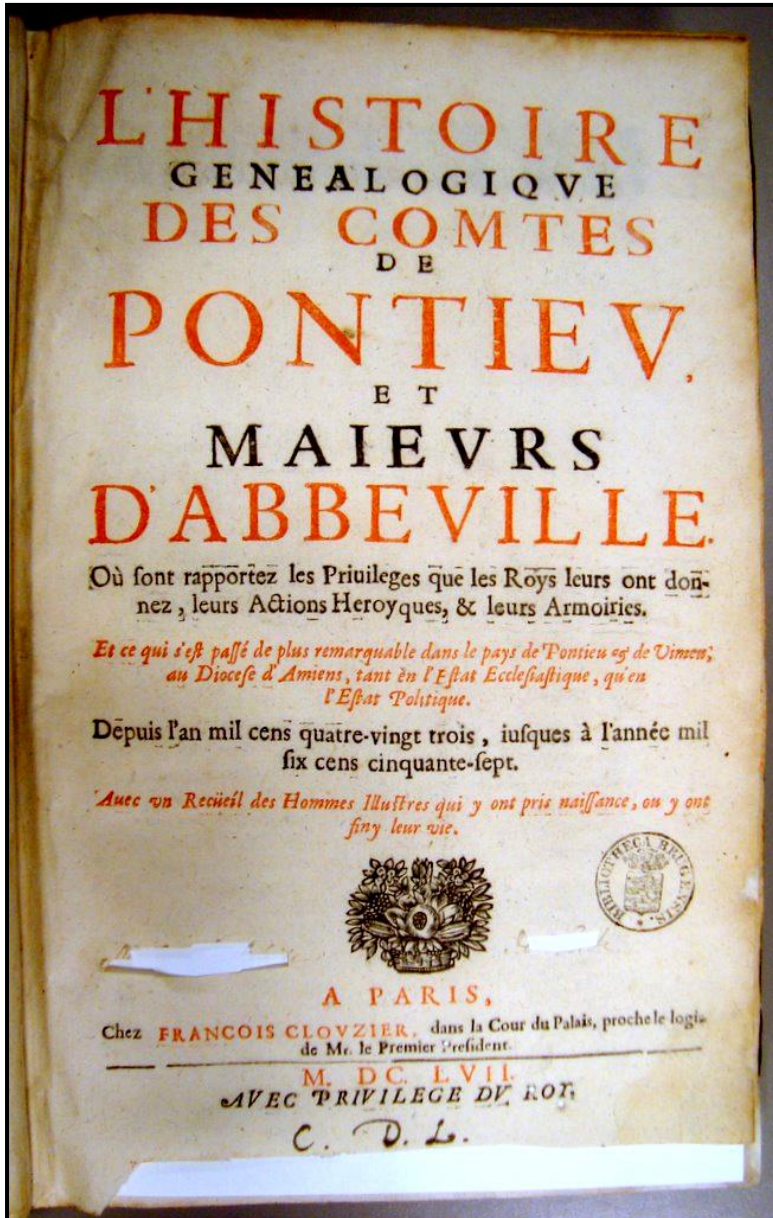 L'HISTOIRE
GENEALOGIQVE
DES COMTES
DE
PONTIEV,
ET
MAIEVRS
D'ABBEVILLE.
Où sont rapportez les Priuileges que les Roys leurs ont don-
nez, leurs Actions Heroyques, & leurs Armoiries.
Et ce qui s'est passé de plus remarquable dans le pays de Pontieu & de Vimeu,
au Diocese d'Amiens, tant en l'Estat Ecclesiastique, qu'en
l'Estat Politique.
Depuis l'an mil cens quatre-vingt trois, iusques à l'année mil
six cens cinquante-sept.
Auec vn Recüeil des Hommes Illustres qui y ont pris naissance, ou y ont
finy leur vie.
BIBLIOTHECA BRUGENSIS.
A PARIS,
Chez FRANCOIS CLOVZIER, dans la Cour du Palais, proche le logis
de Mr. le Premier President.
M. DC. LVII.
AVEC PRIVILEGE DV ROY.
C. D. L.